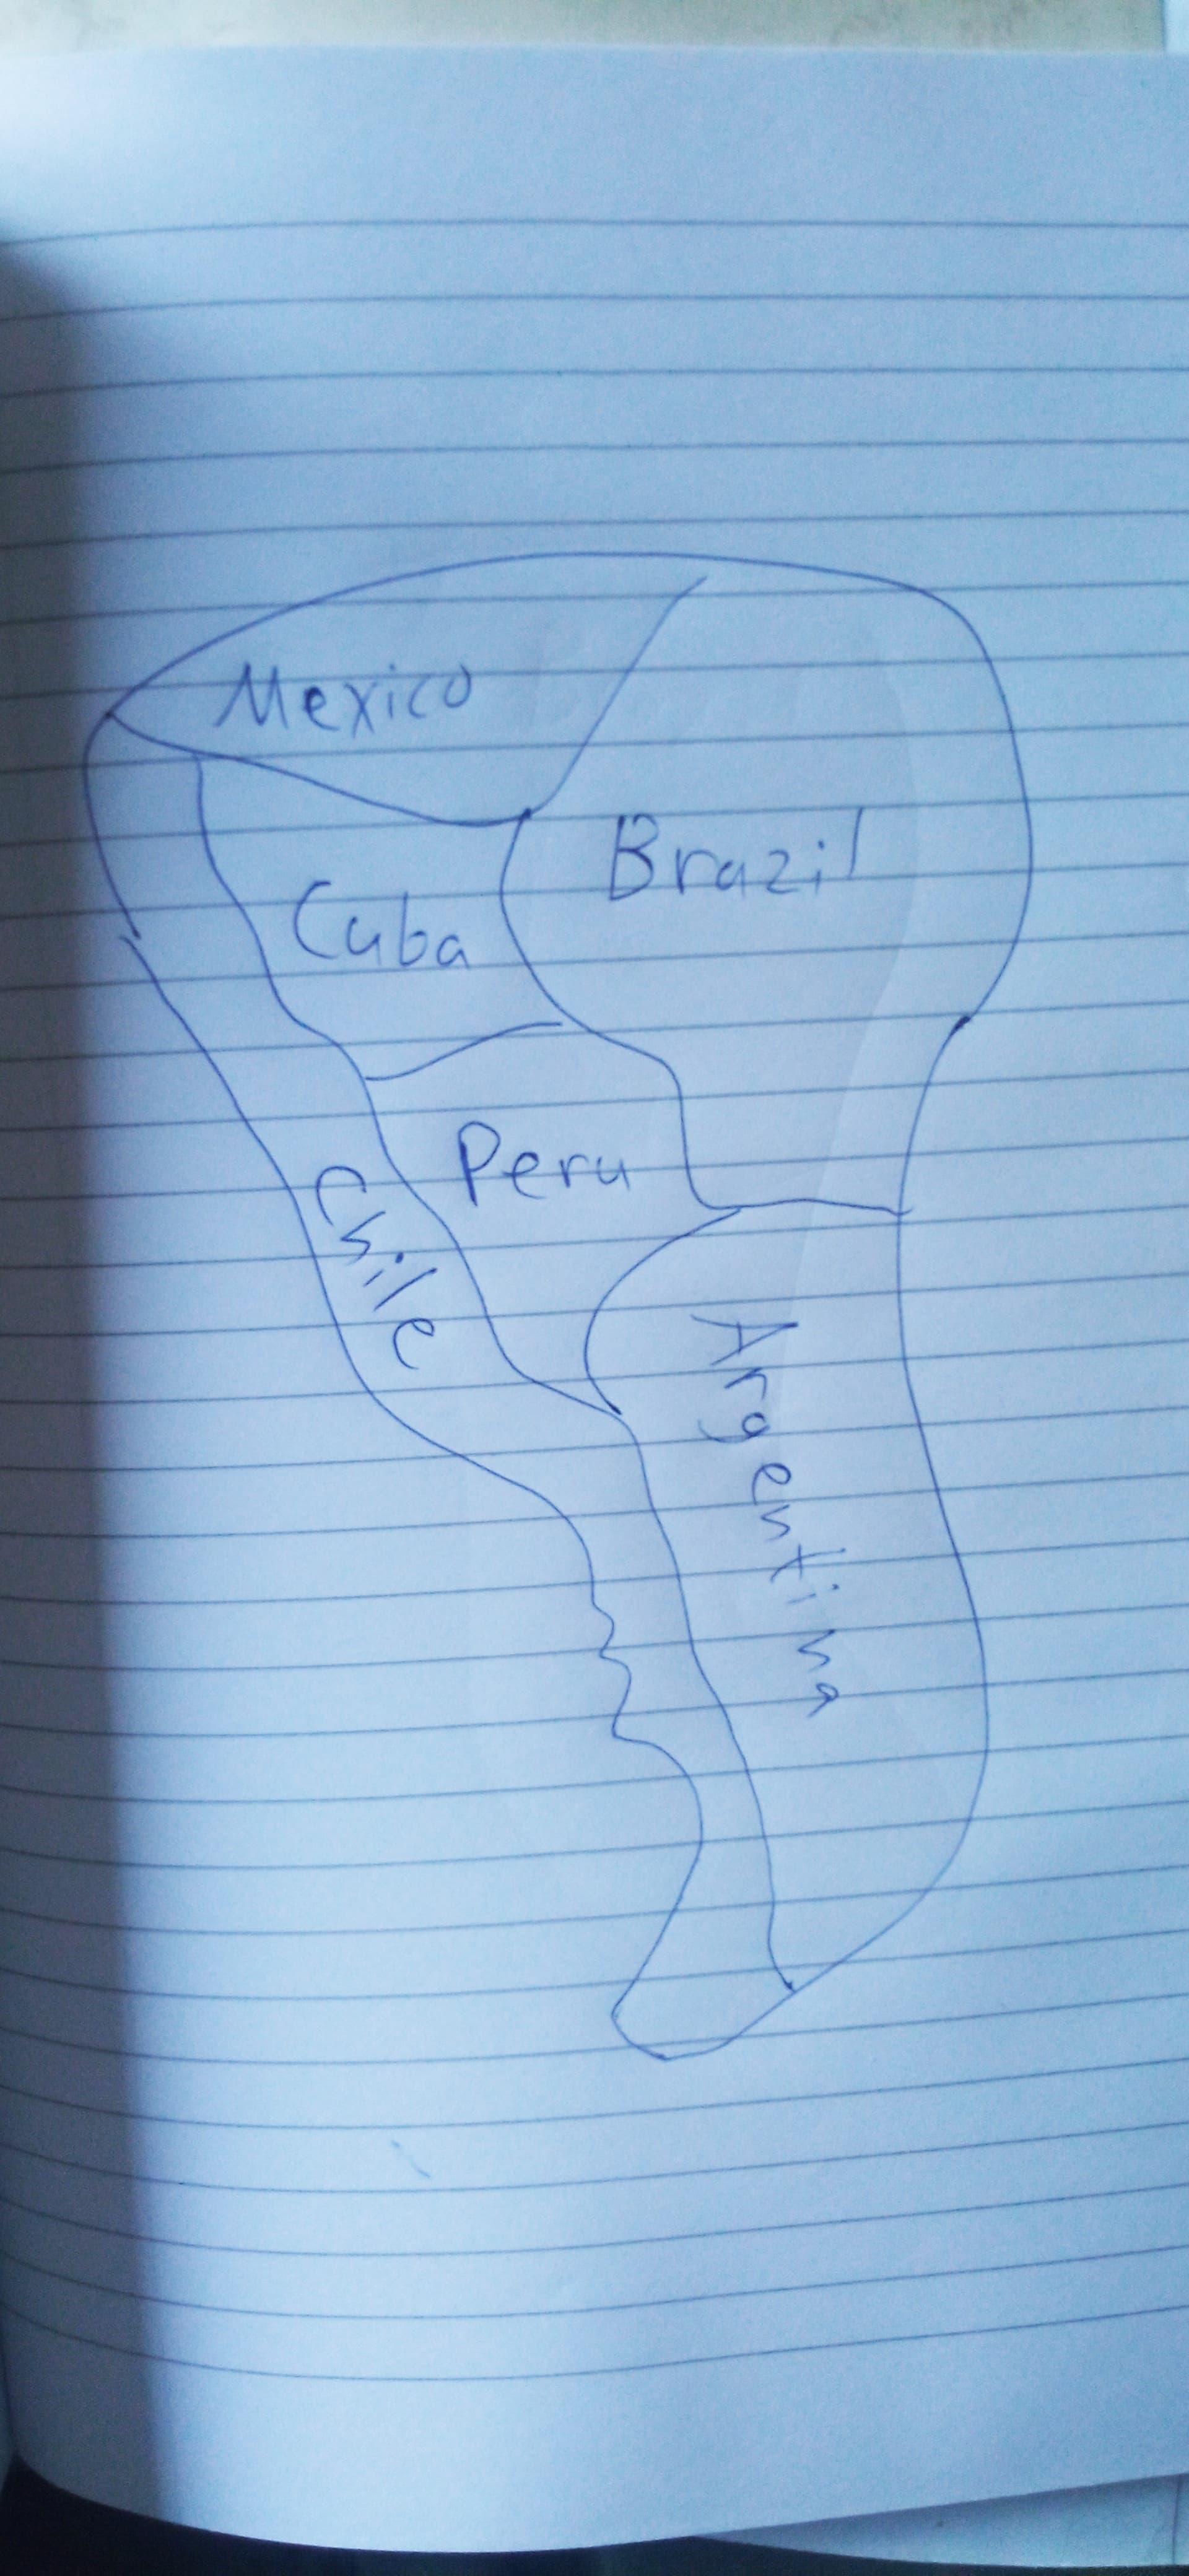 Mexico
Brazil
Cuba
Peru
Chile
Argentina